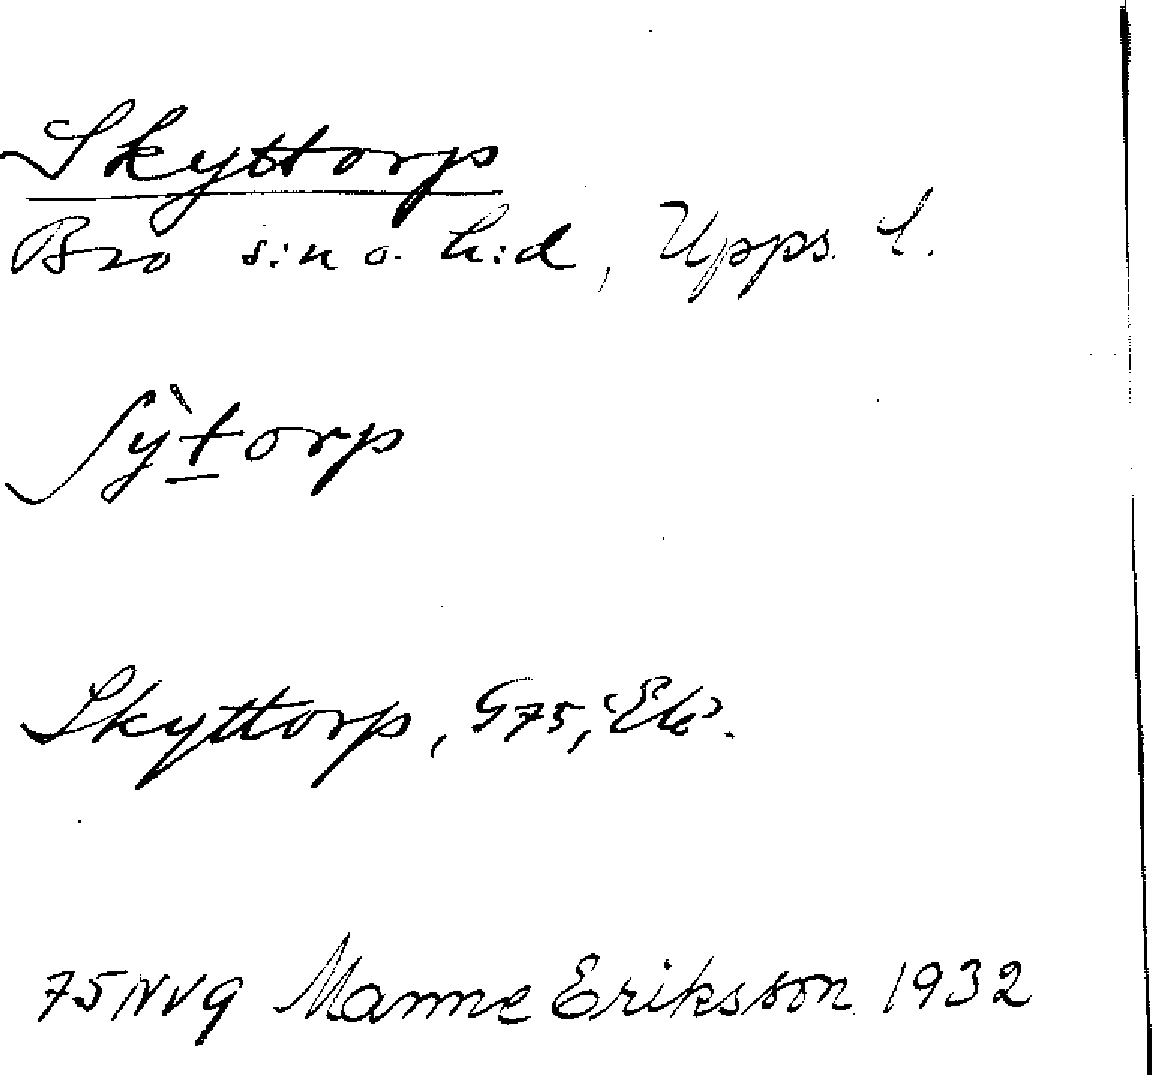 Skyttorp
Bro s:n o. h:d, Upps. l.
ʃỳtorp
Skyttorp, G75, Ek².
75NVg Manne Eriksson 1932